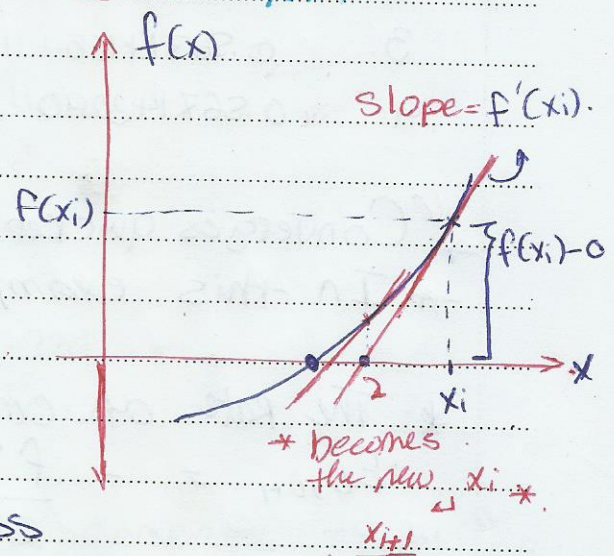 f(x)
slope = f'(xi).
f(xi)
f(xi)-0
x
2
xi
* becomes
the new xi *.
xi+1
ss